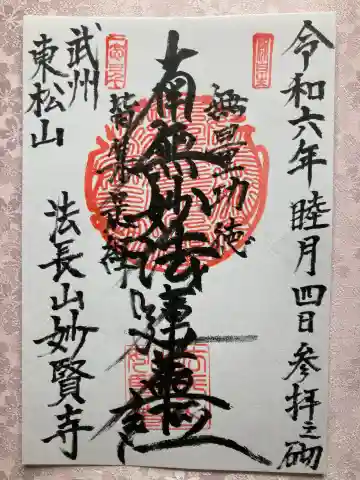 令和六年 睦月四日参拝之砌
無量功徳
南無妙法蓮華経
皆集是経
武州
東松山
法長山妙賢寺